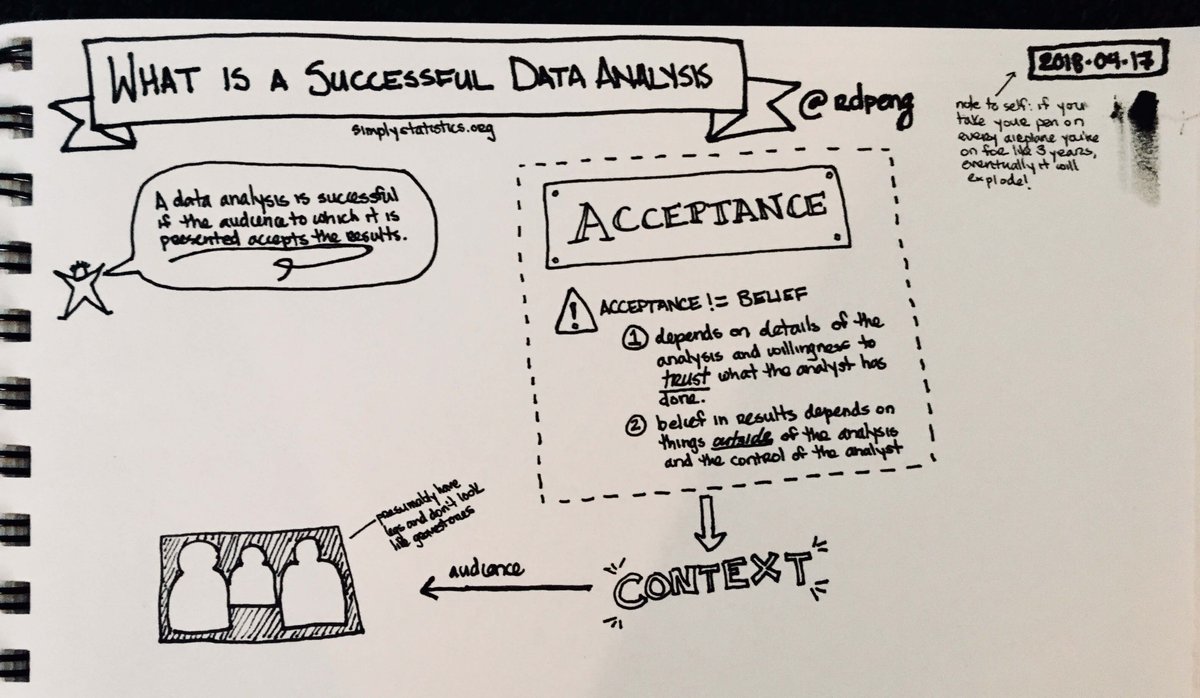 WHAT IS A SUCCESSFUL DATA ANALYSIS
@rdpeng
simplystatistics.org
2018.04.17
note to self: if you
take your pen on
every airplane you're
on for like 3 years,
eventually it will
explode!
A data analysis is successful
if the audience to which it is
presented accepts the results.
ACCEPTANCE
! ACCEPTANCE != BELIEF
1 depends on details of the
analysis and willingness to
trust what the analyst has
done.
2 belief in results depends on
things outside of the analysis
and the control of the analyst
CONTEXT
audience
presumably have
legs and don't look
like gravestones